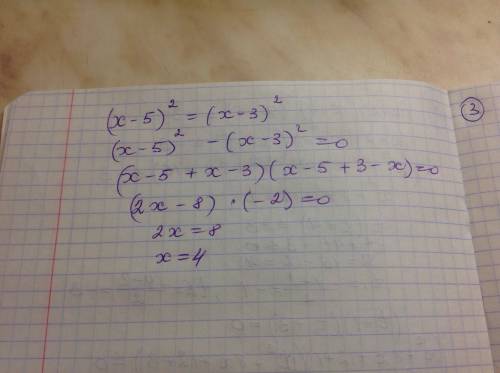 (x-5)² = (x-3)²
③
(x-5)² - (x-3)² = 0
(x-5 + x-3)(x-5+3-x)=0
(2x-8) · (-2) = 0
2x = 8
x = 4